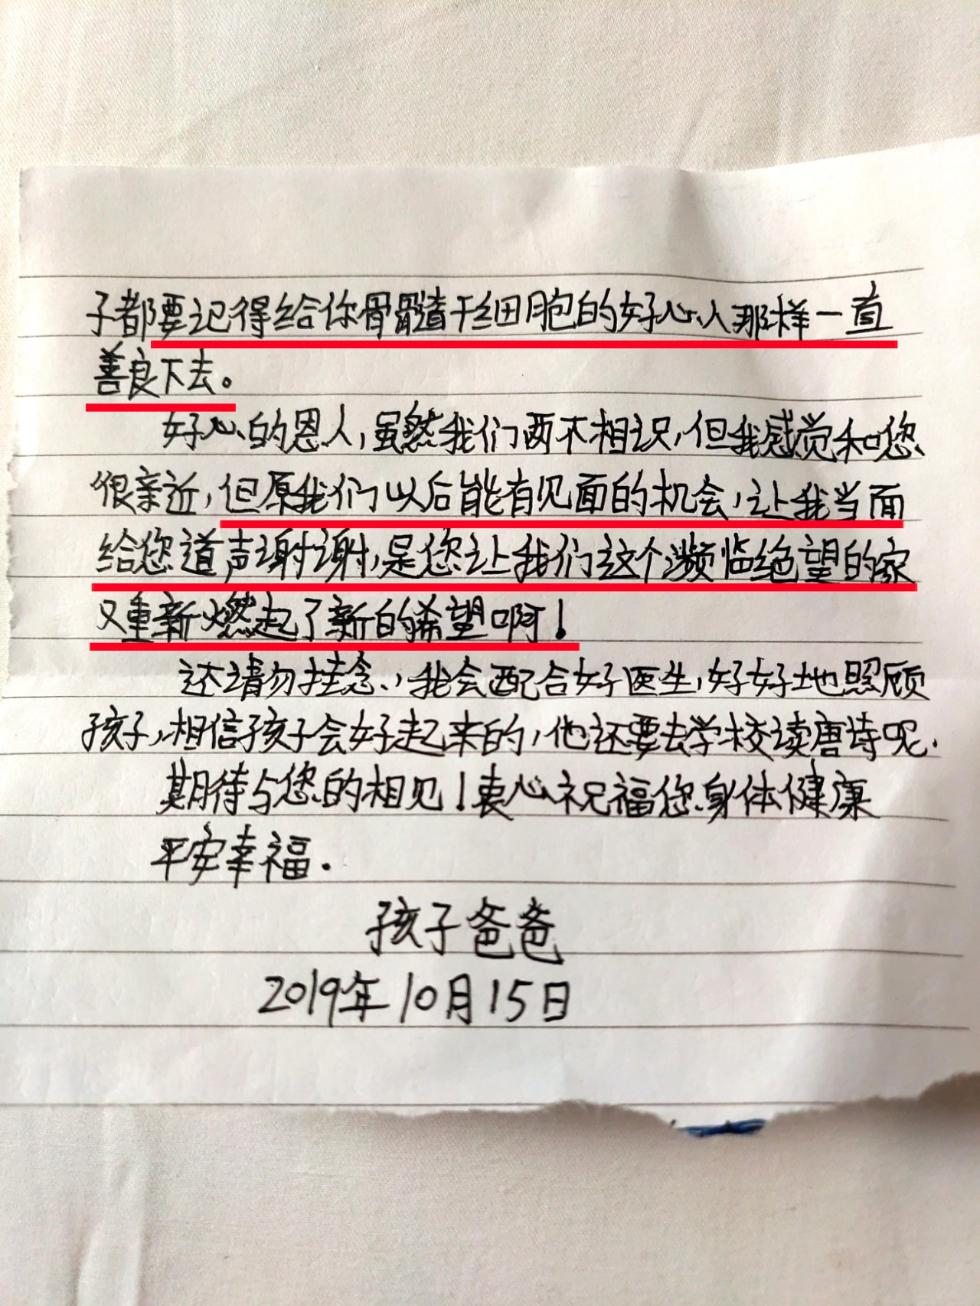 子都要记得给你骨髓干细胞的好心人那样一直
善良下去。
好心的恩人,虽然我们两不相识,但我感觉和您
很亲近,但原我们以后能有见面的机会,让我当面
给您道声谢谢,是您让我们这个濒临绝望的家
又重新燃起了新的希望啊!
还请勿挂念,我会配合好医生,好好地照顾
孩子,相信孩子会好起来的,他还要去学校读唐诗呢.
期待与您的相见!衷心祝福您身体健康
平安幸福.
孩子爸爸
2019年10月15日